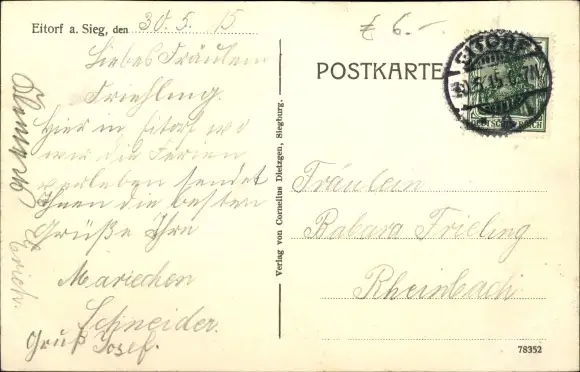 Eitorf a. Sieg, den 30.5.15
Liebes Fräulein
Friehling.
Hier in Eitorf wo
wir die Ferien
verleben sendet
Ihnen die besten
Grüße Ihre
Mariechen
Schneider.
Gruß Josef.
Erich.
£ 6.-
POSTKARTE
EITORF
30.5.15
DEUTSCHES REICH
Fräulein
Babara Frieling
Rheinbach
Verlag von Cornelius Dietzgen, Siegburg.
78352